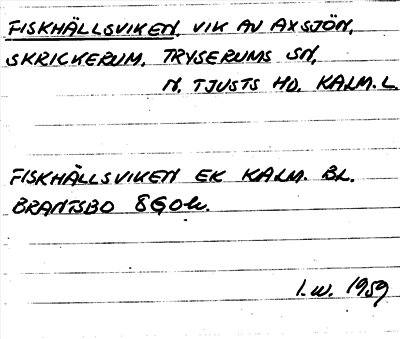 FISKHÄLLSVIKEN, VIK AV AXSJÖN,
SKRICKERUM, TRYSERUMS SN,
N. TJUSTS HD. KALM. L.
FISKHÄLLSVIKEN EK KALM. BL.
BRANTSBO 8G0k.
I.W. 1959